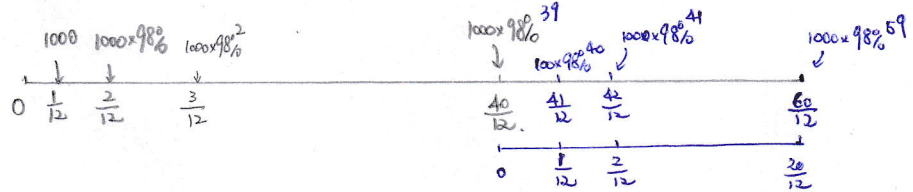 1000 1000×98% 1000×98%² 1000×98%³⁹ 100×98%⁴⁰ 1000×98%⁴¹ 1000×98%⁵⁹
0 1/12 2/12 3/12 40/12. 41/12 42/12 60/12
0 1/12 2/12 20/12